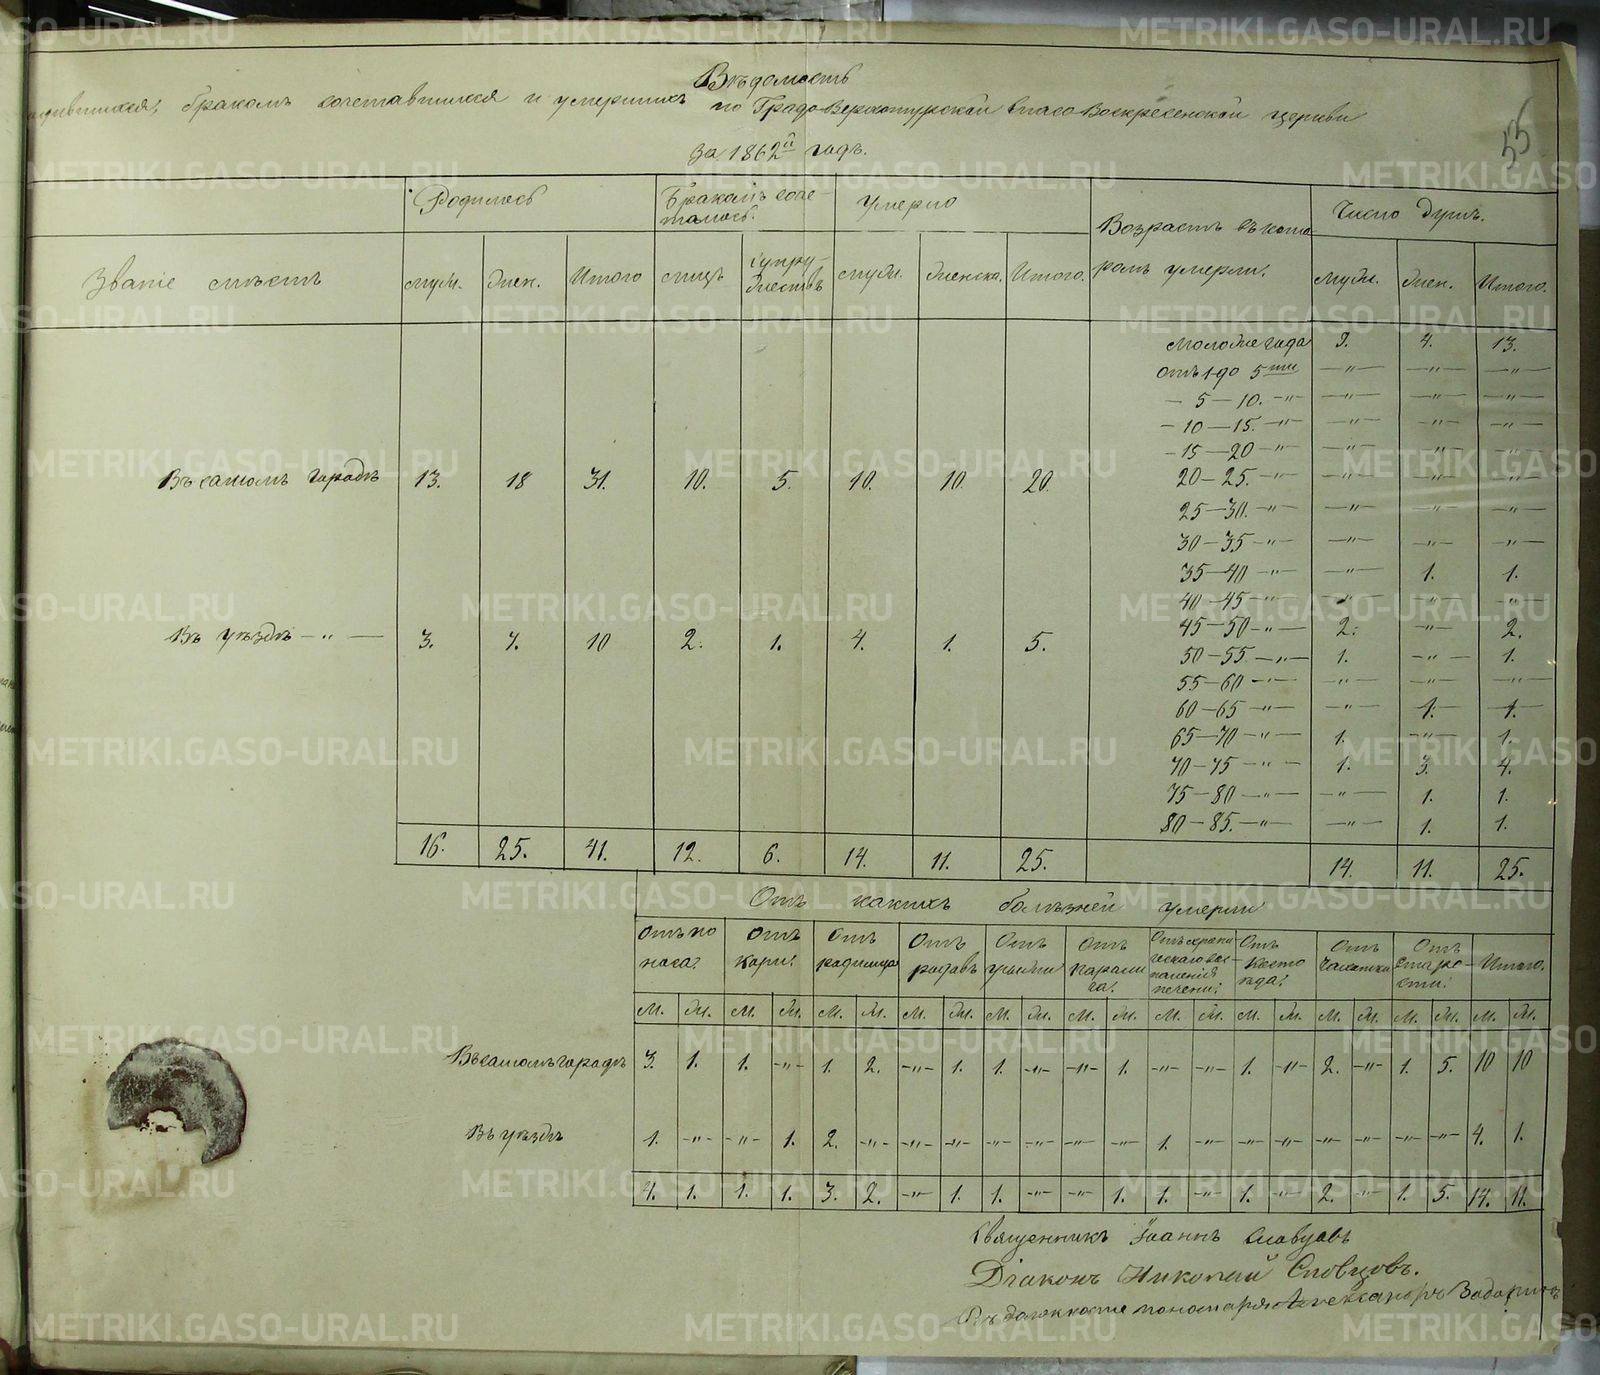 Вѣдомость
бракомъ сочетавшихся и умершихъ по Градо-Верхотурской Спасо Воскресенской церкви
за 1862й годъ.
55
Званіе мѣстъ
Родилось
Бракомъ соче-
талось.
Умерло
Возрастъ въ кото-
ромъ умерли.
Число душъ.
муж. жен. Итого лицъ супру-
жествъ муж. женска. Итого. муж. жен. Итого.
моложе года 9. 4. 13.
отъ 1 до 5ти — „ — — „ — — „ —
— 5 — 10. — „ — „ — — „ — — „ —
— 10 — 15. — „ — „ — — „ — — „ —
— 15 — 20 — „ — „ — — „ — — „ —
Въ самомъ городѣ 13. 18 31. 10. 5. 10. 10. 20.
20 — 25. — „ — „ — — „ — — „ —
25 — 30. — „ — „ — — „ — — „ —
30 — 35 — „ — „ — — „ — — „ —
35 — 40 — „ — „ — 1. 1.
40 — 45 — „ — „ — — „ — — „ —
Въ уѣздѣ — „ — 3. 7. 10 2. 1. 4. 1. 5.
45 — 50 — „ — 2. — „ — 2.
50 — 55 — „ — 1. — „ — 1.
55 — 60 — „ — „ — — „ — — „ —
60 — 65 — „ — „ — 1. 1.
65 — 70 — „ — 1. — „ — 1.
70 — 75 — „ — 1. 3. 4.
75 — 80 — „ — „ — 1. 1.
80 — 85. — „ — „ — 1. 1.
16. 25. 41. 12. 6. 14. 11. 25. 14. 11. 25.
Отъ какихъ болѣзней умерли
Отъ по
носа. Отъ
кори. Отъ
родимца Отъ
родовъ Отъ
грыжи Отъ
парали
ча. воспаленія
печени. Отъ Отъ
чахотки Отъ
старо-
сти. Итого.
м. ж. м. ж. м. ж. м. ж. м. ж. м. ж. м. ж. м. ж. м. ж. м. ж. м. ж.
Въ самомъ городѣ 3. 1. 1. — „ — 1. 2. — „ — 1. 1. — „ — — „ — 1. — „ — — „ — 1. — „ — 2. — „ — 1. 5. 10 10
Въ уѣздѣ 1. — „ — — „ — 1. 2. — „ — — „ — — „ — — „ — — „ — — „ — — „ — 1. — „ — — „ — — „ — — „ — — „ — — „ — — „ — 4. 1.
4. 1. 1. 1. 3. 2. — „ — 1. 1. — „ — — „ — 1. 1. — „ — 1. — „ — 2. — „ — 1. 5. 14. 11.
Священникъ Іоаннъ Словцовъ
Діаконъ Николай Словцовъ.
Въ должности пономаря Александръ
METRIKI.GASO-URAL.RU